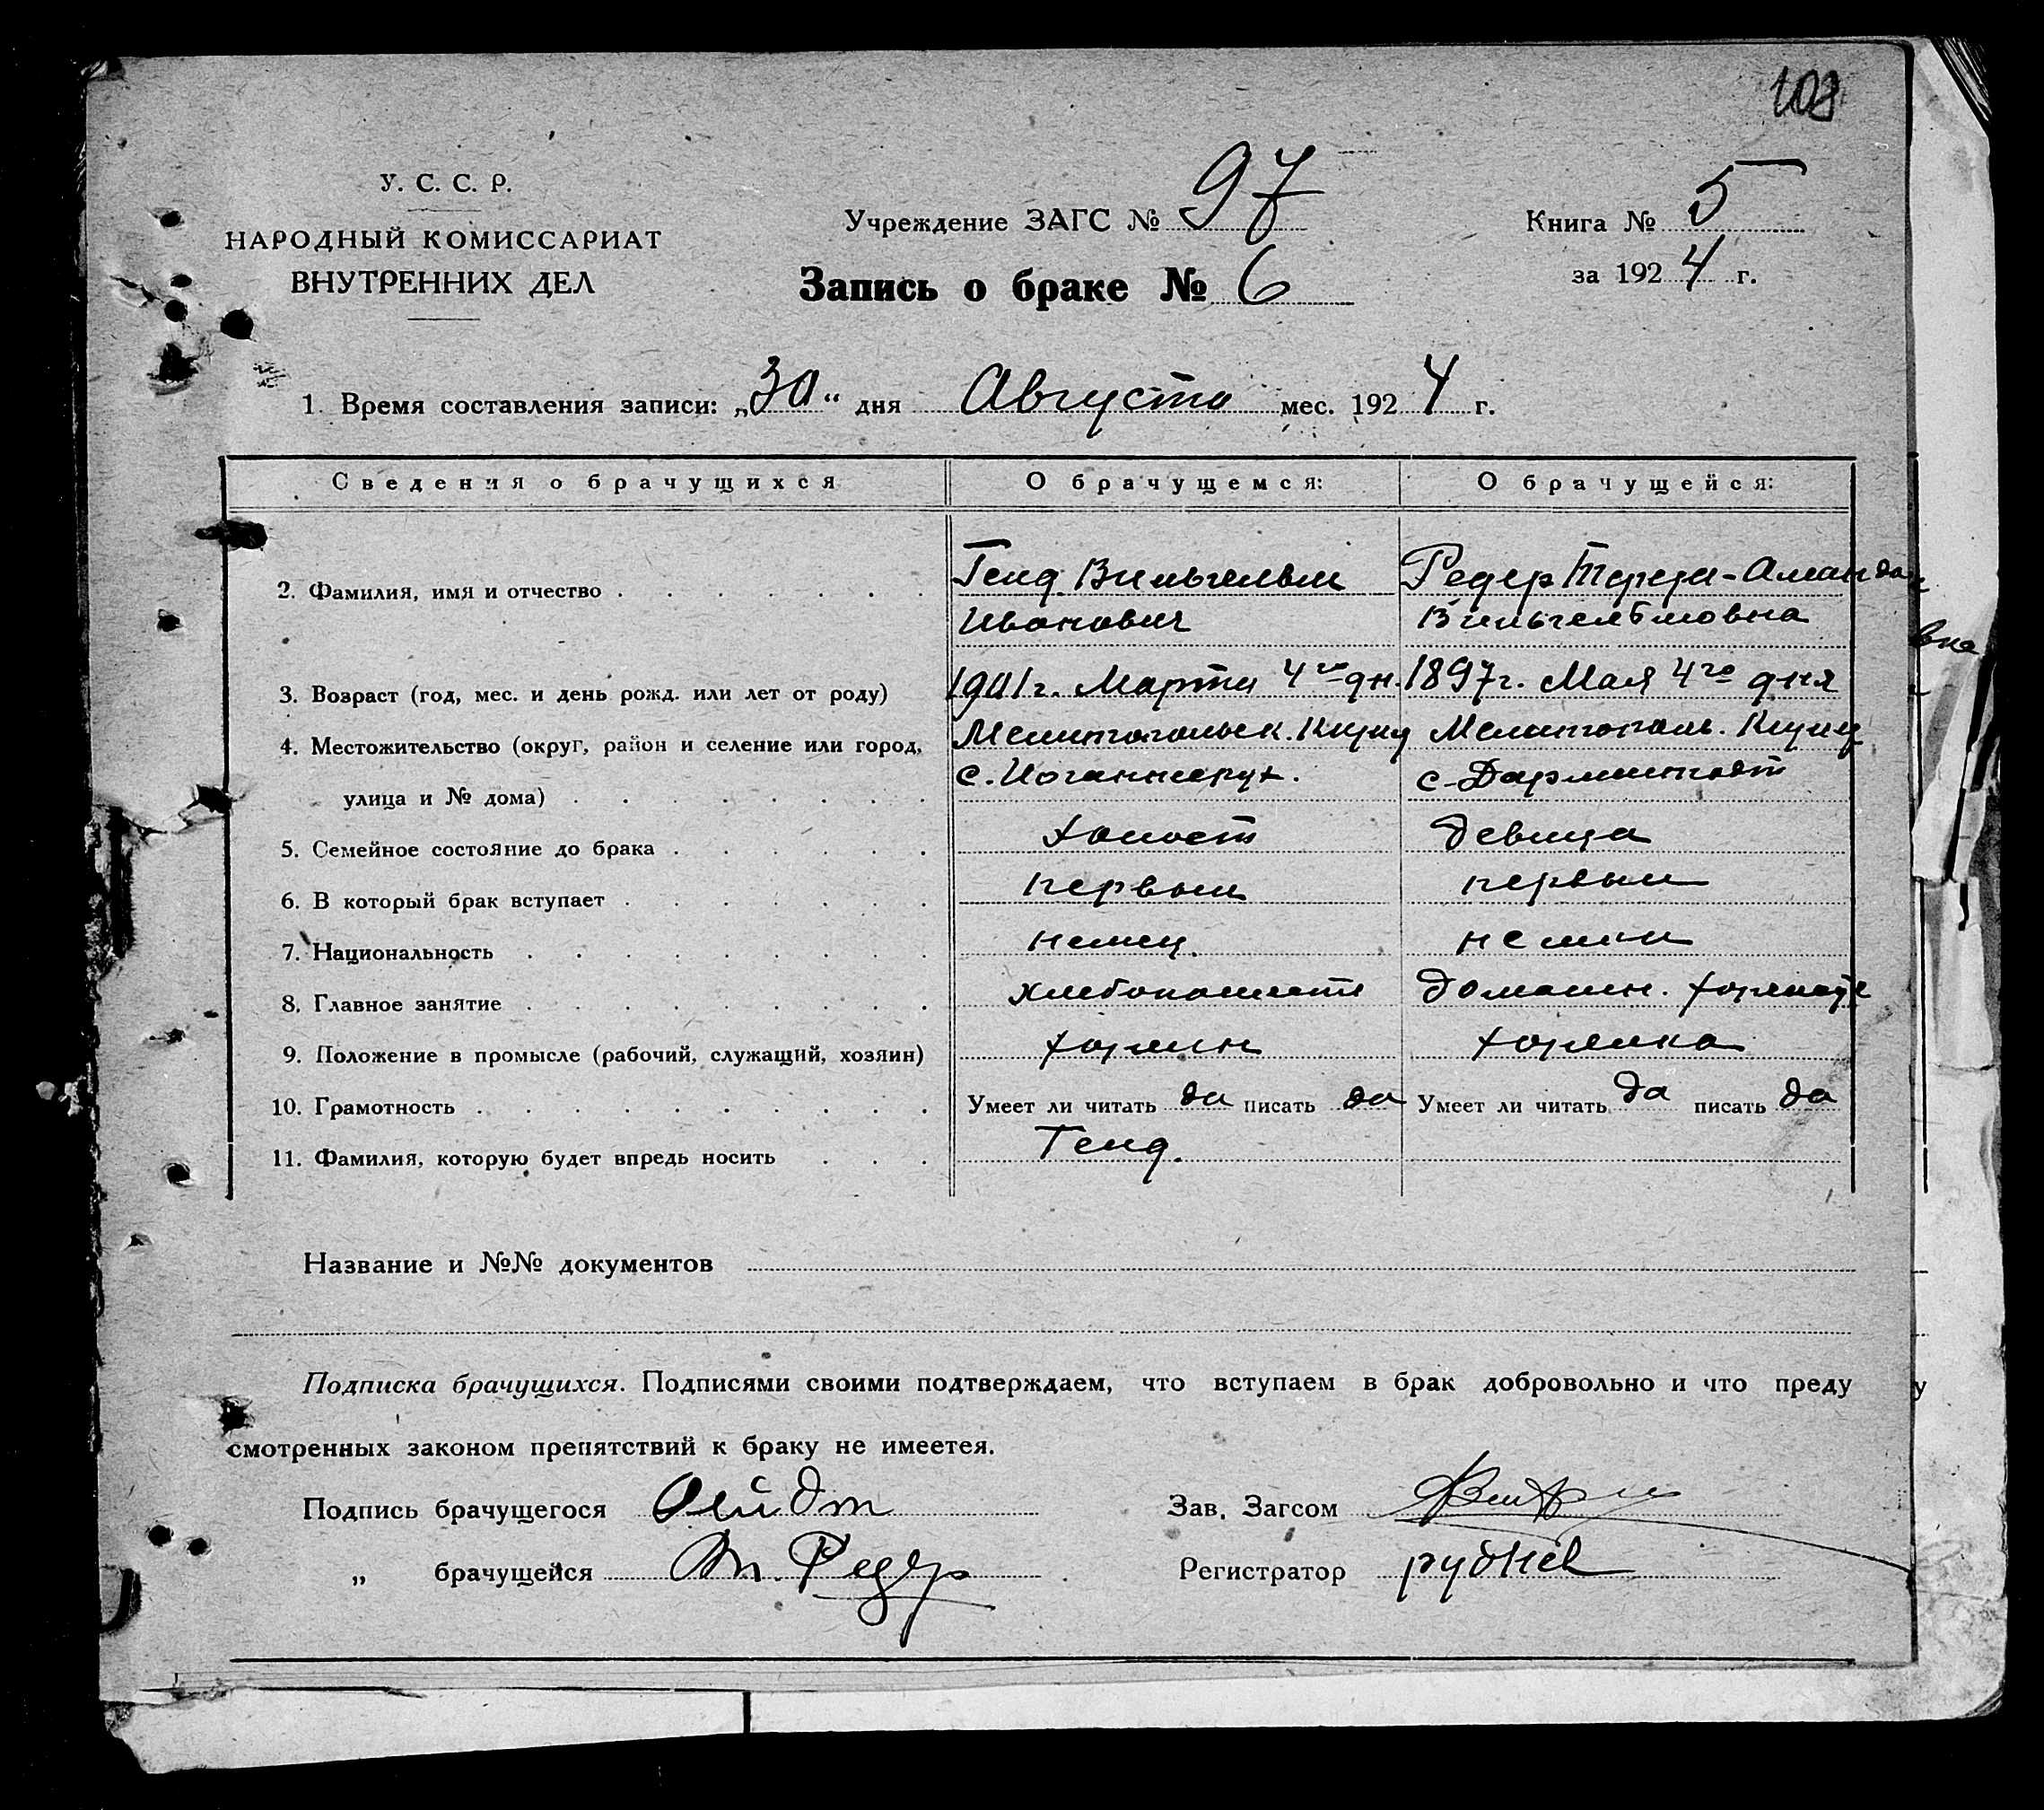 109
У. С. С. Р.
НАРОДНЫЙ КОМИССАРИАТ
ВНУТРЕННИХ ДЕЛ
Учреждение ЗАГС № 97
Книга № 5
за 1924 г.
Запись о браке № 6
1. Время составления записи: „30“ дня Августа мес. 1924 г.
Сведения о брачущихся
О брачущемся:
О брачущейся:
2. Фамилия, имя и отчество
Вильгельм
Иванович
Редер Тереза-Аманда
Вильгельмовна
3. Возраст (год, мес. и день рожд. или лет от роду)
1901 г. Марта 4го дн.
1897 г. Мая 4го дня
4. Местожительство (округ, район и селение или город,
улица и № дома)
Мелитопольск.
с. Иоганнесру.
Мелитополь.
с. Дармштадт
5. Семейное состояние до брака
холост
девица
6. В который брак вступает
первый
первый
7. Национальность
немец.
немки
8. Главное занятие
хлебопашест
домашн. хозяйств
9. Положение в промысле (рабочий, служащий, хозяин)
хозяин
хозяйка
10. Грамотность
Умеет ли читать да писать да
Умеет ли читать да писать да
11. Фамилия, которую будет впредь носить
Название и №№ документов
Подписка брачущихся. Подписями своими подтверждаем, что вступаем в брак добровольно и что преду
смотренных законом препятствий к браку не имеетея.
Подпись брачущегося
Зав. Загсом
„ брачущейся Редер
Регистратор